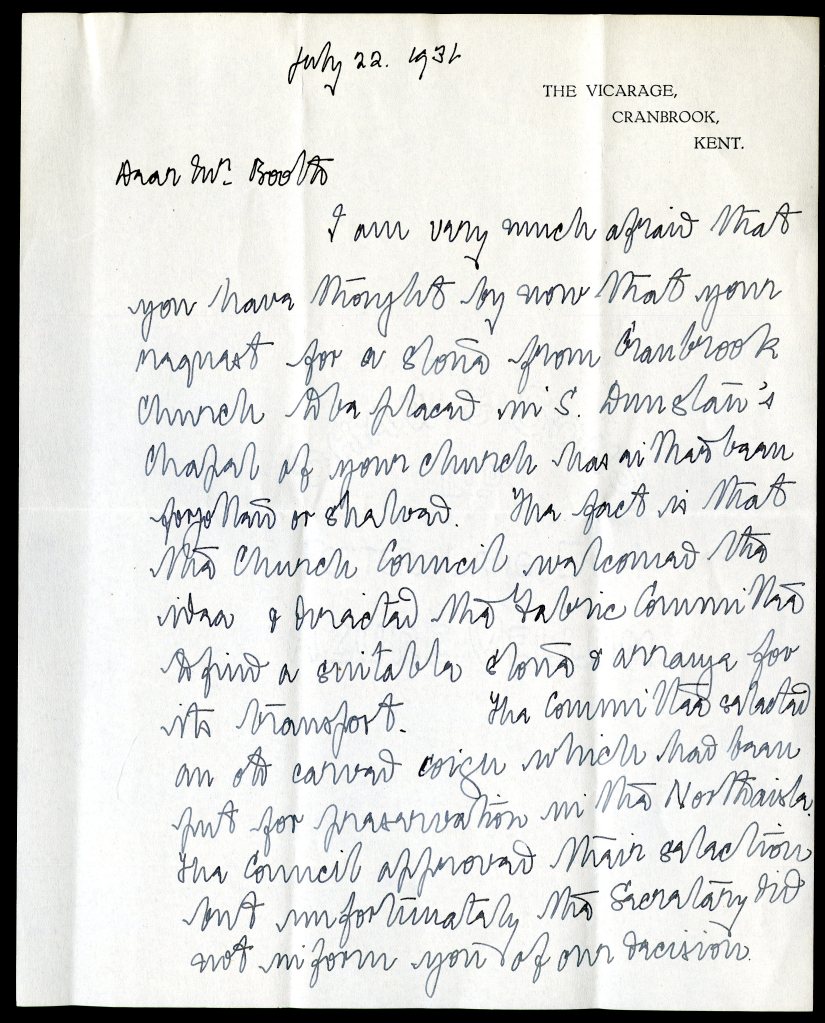 July 22. 1931
THE VICARAGE,
CRANBROOK,
KENT.
Dear Mr. Booth
I am very much afraid that
you have thought by now that your
request for a stone from Cranbrook
Church to be placed in S. Dunstan's
Chapel of your church has either been
forgotten or shelved. The fact is that
the Church Council welcomed the
idea & directed the Fabric Committee
to find a suitable stone & arrange for
its transport. The Committee selected
an old carved coign which had been
put for preservation in the North aisle.
The Council approved their selection
but unfortunately the Secretary did
not inform you of our decision.